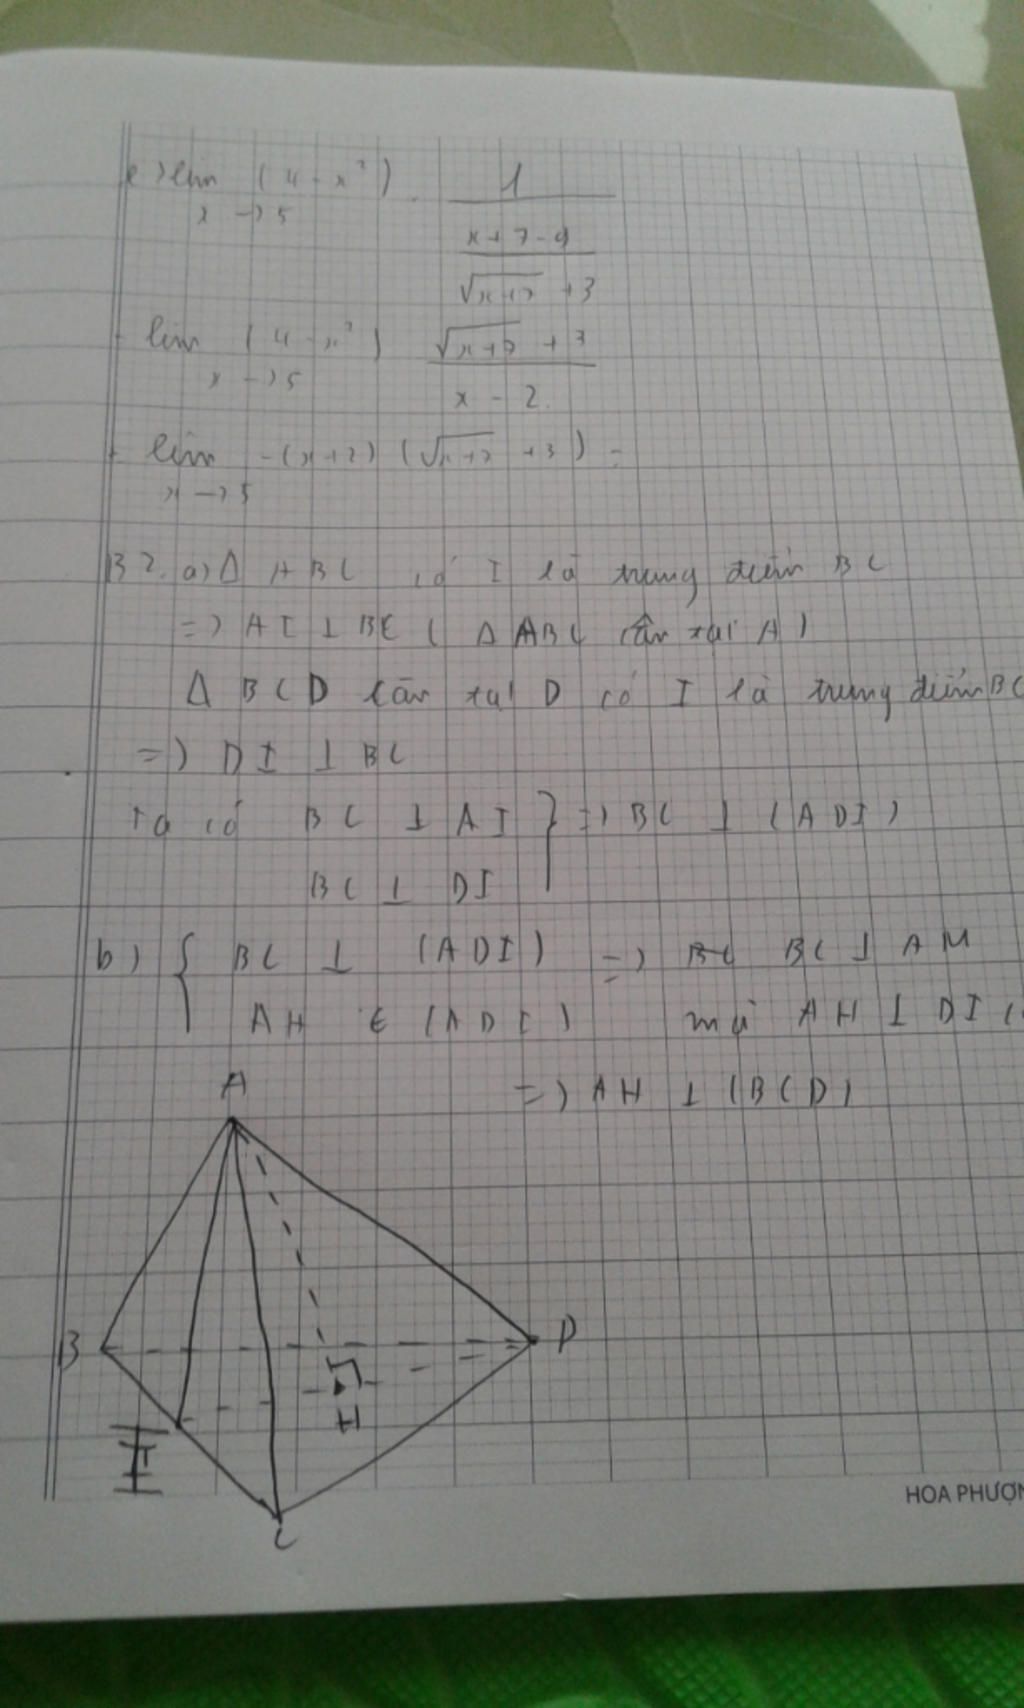 lim (4 - x²) . 1
x -> 5
x + 7 - 9
√x+7 + 3
lim (4 - x²) √x+7 + 3
x -> 5
x - 2
lim -(x+2) (√x+7 +3) =
x -> 5
B2. a) Δ ABC có I là trung điểm BC
=> AI ⊥ BC ( Δ ABC cân tại A)
Δ BCD cân tại D có I là trung điểm BC
=> DI ⊥ BC
Ta có BC ⊥ AI } => BC ⊥ (ADI)
BC ⊥ DI
b) { BC ⊥ (ADI) => BC BC ⊥ AM
AH ∈ (ADI) mà AH ⊥ DI (
=> AH ⊥ (BCD)
A
B
D
H
I
C
HOA PHƯỢN